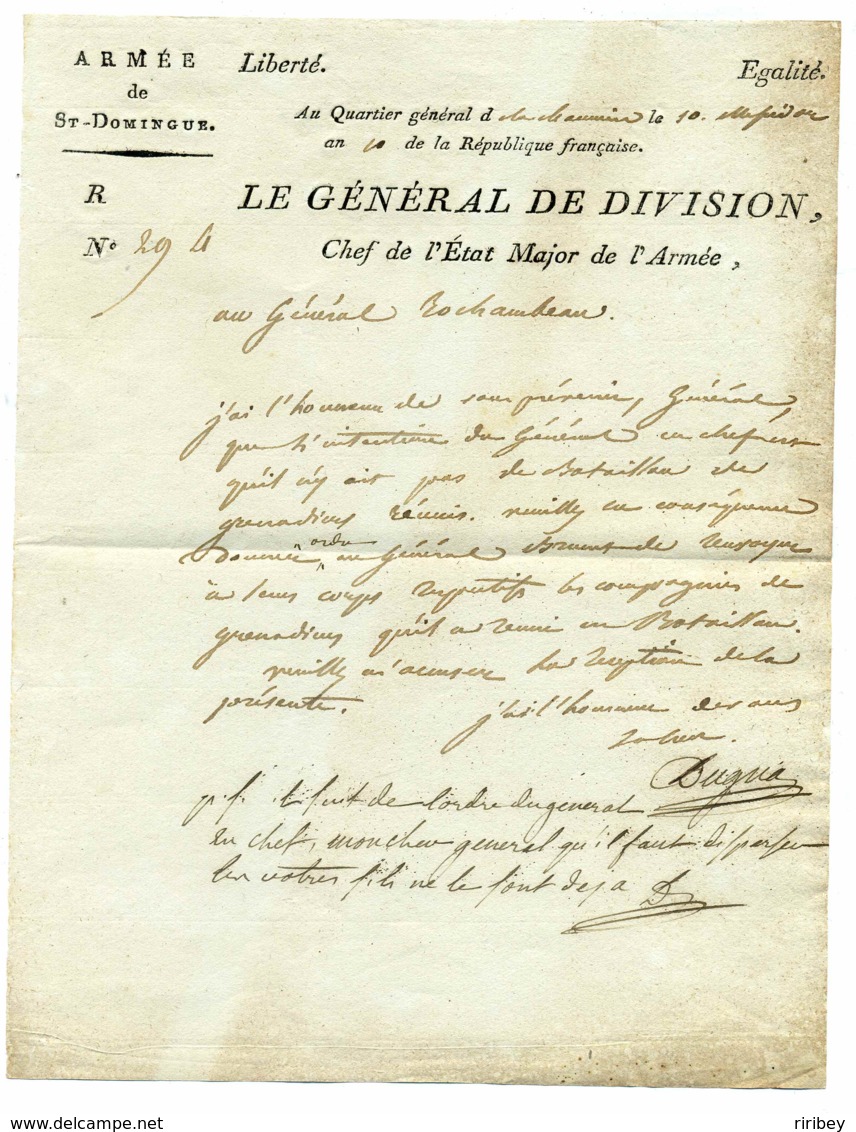 ARMÉE
de
ST-DOMINGUE.
Liberté. Egalité.
Au Quartier général d le 10. Messidor
an 10 de la République française.
R
LE GÉNÉRAL DE DIVISION,
N° 294
Chef de l'État Major de l'Armée,
au Général Rochambeau.
j'ai l'honneur de vous prévenir, Général,
que l'intention du Général en chef est
qu'il n'y ait pas de Bataillon de
grenadiers réunis. veuillez en conséquence
donner ordre au Général Brunet de renvoyer
à leurs corps respectifs les compagnies de
grenadiers qu'il a reuni en Bataillon.
veuillez m'accuser la reception de la
présente. j'ai l'honneur de vous
saluer.
Dugua
de l'ordre du général
en chef, mon cher general qu'il faut disperser
les votres s'ils ne le sont deja D
riribey